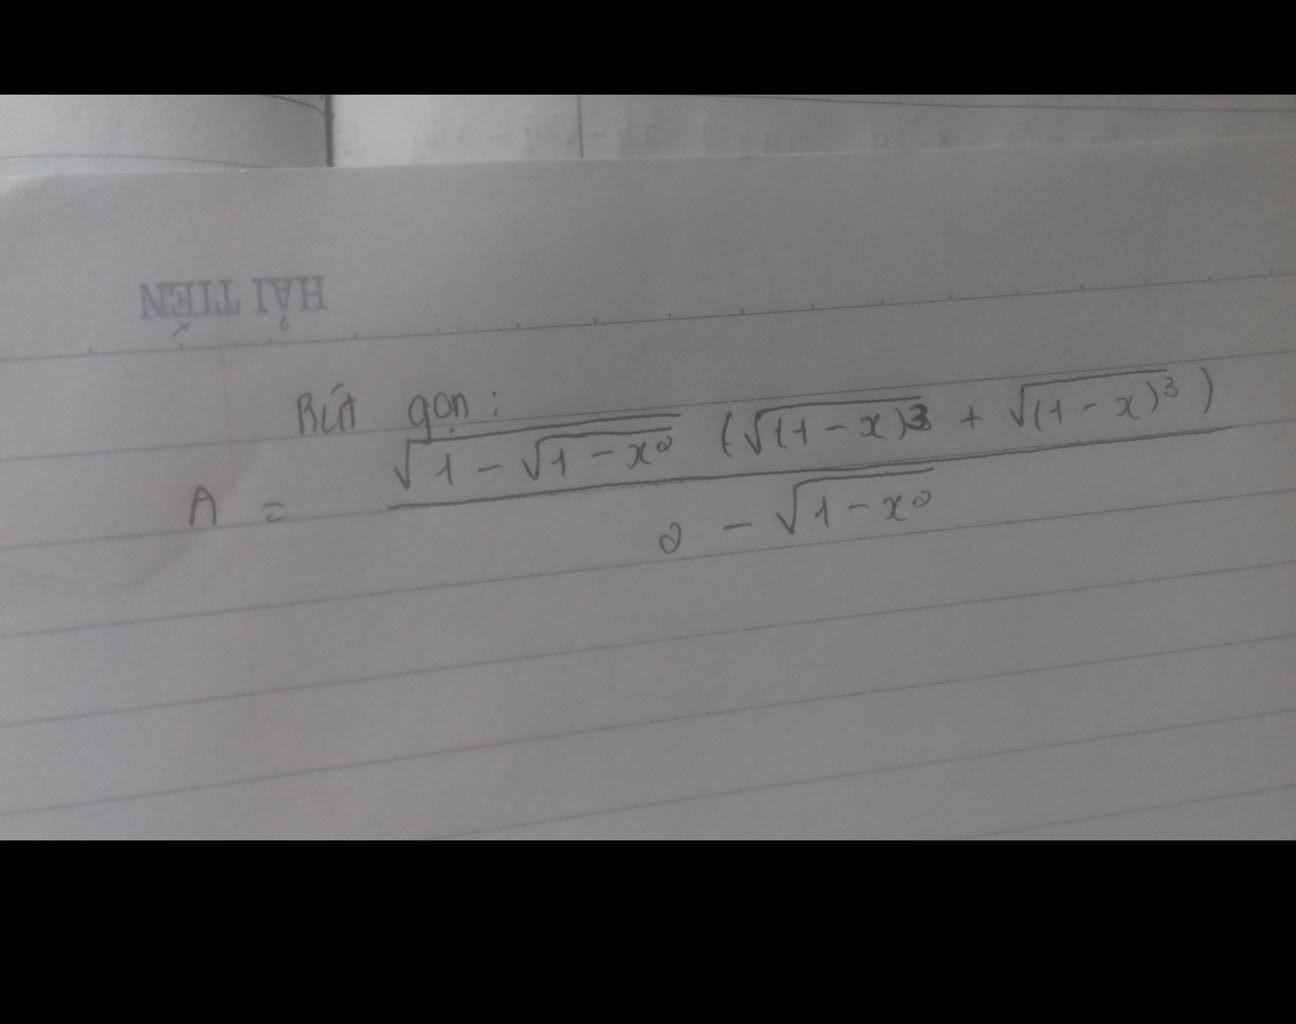 HẢI TIẾN
Rút gọn:
A = \frac{\sqrt{1 - \sqrt{1 - x^2}} (\sqrt{(1 - x)^3} + \sqrt{(1 - x)^3})}{2 - \sqrt{1 - x^2}}